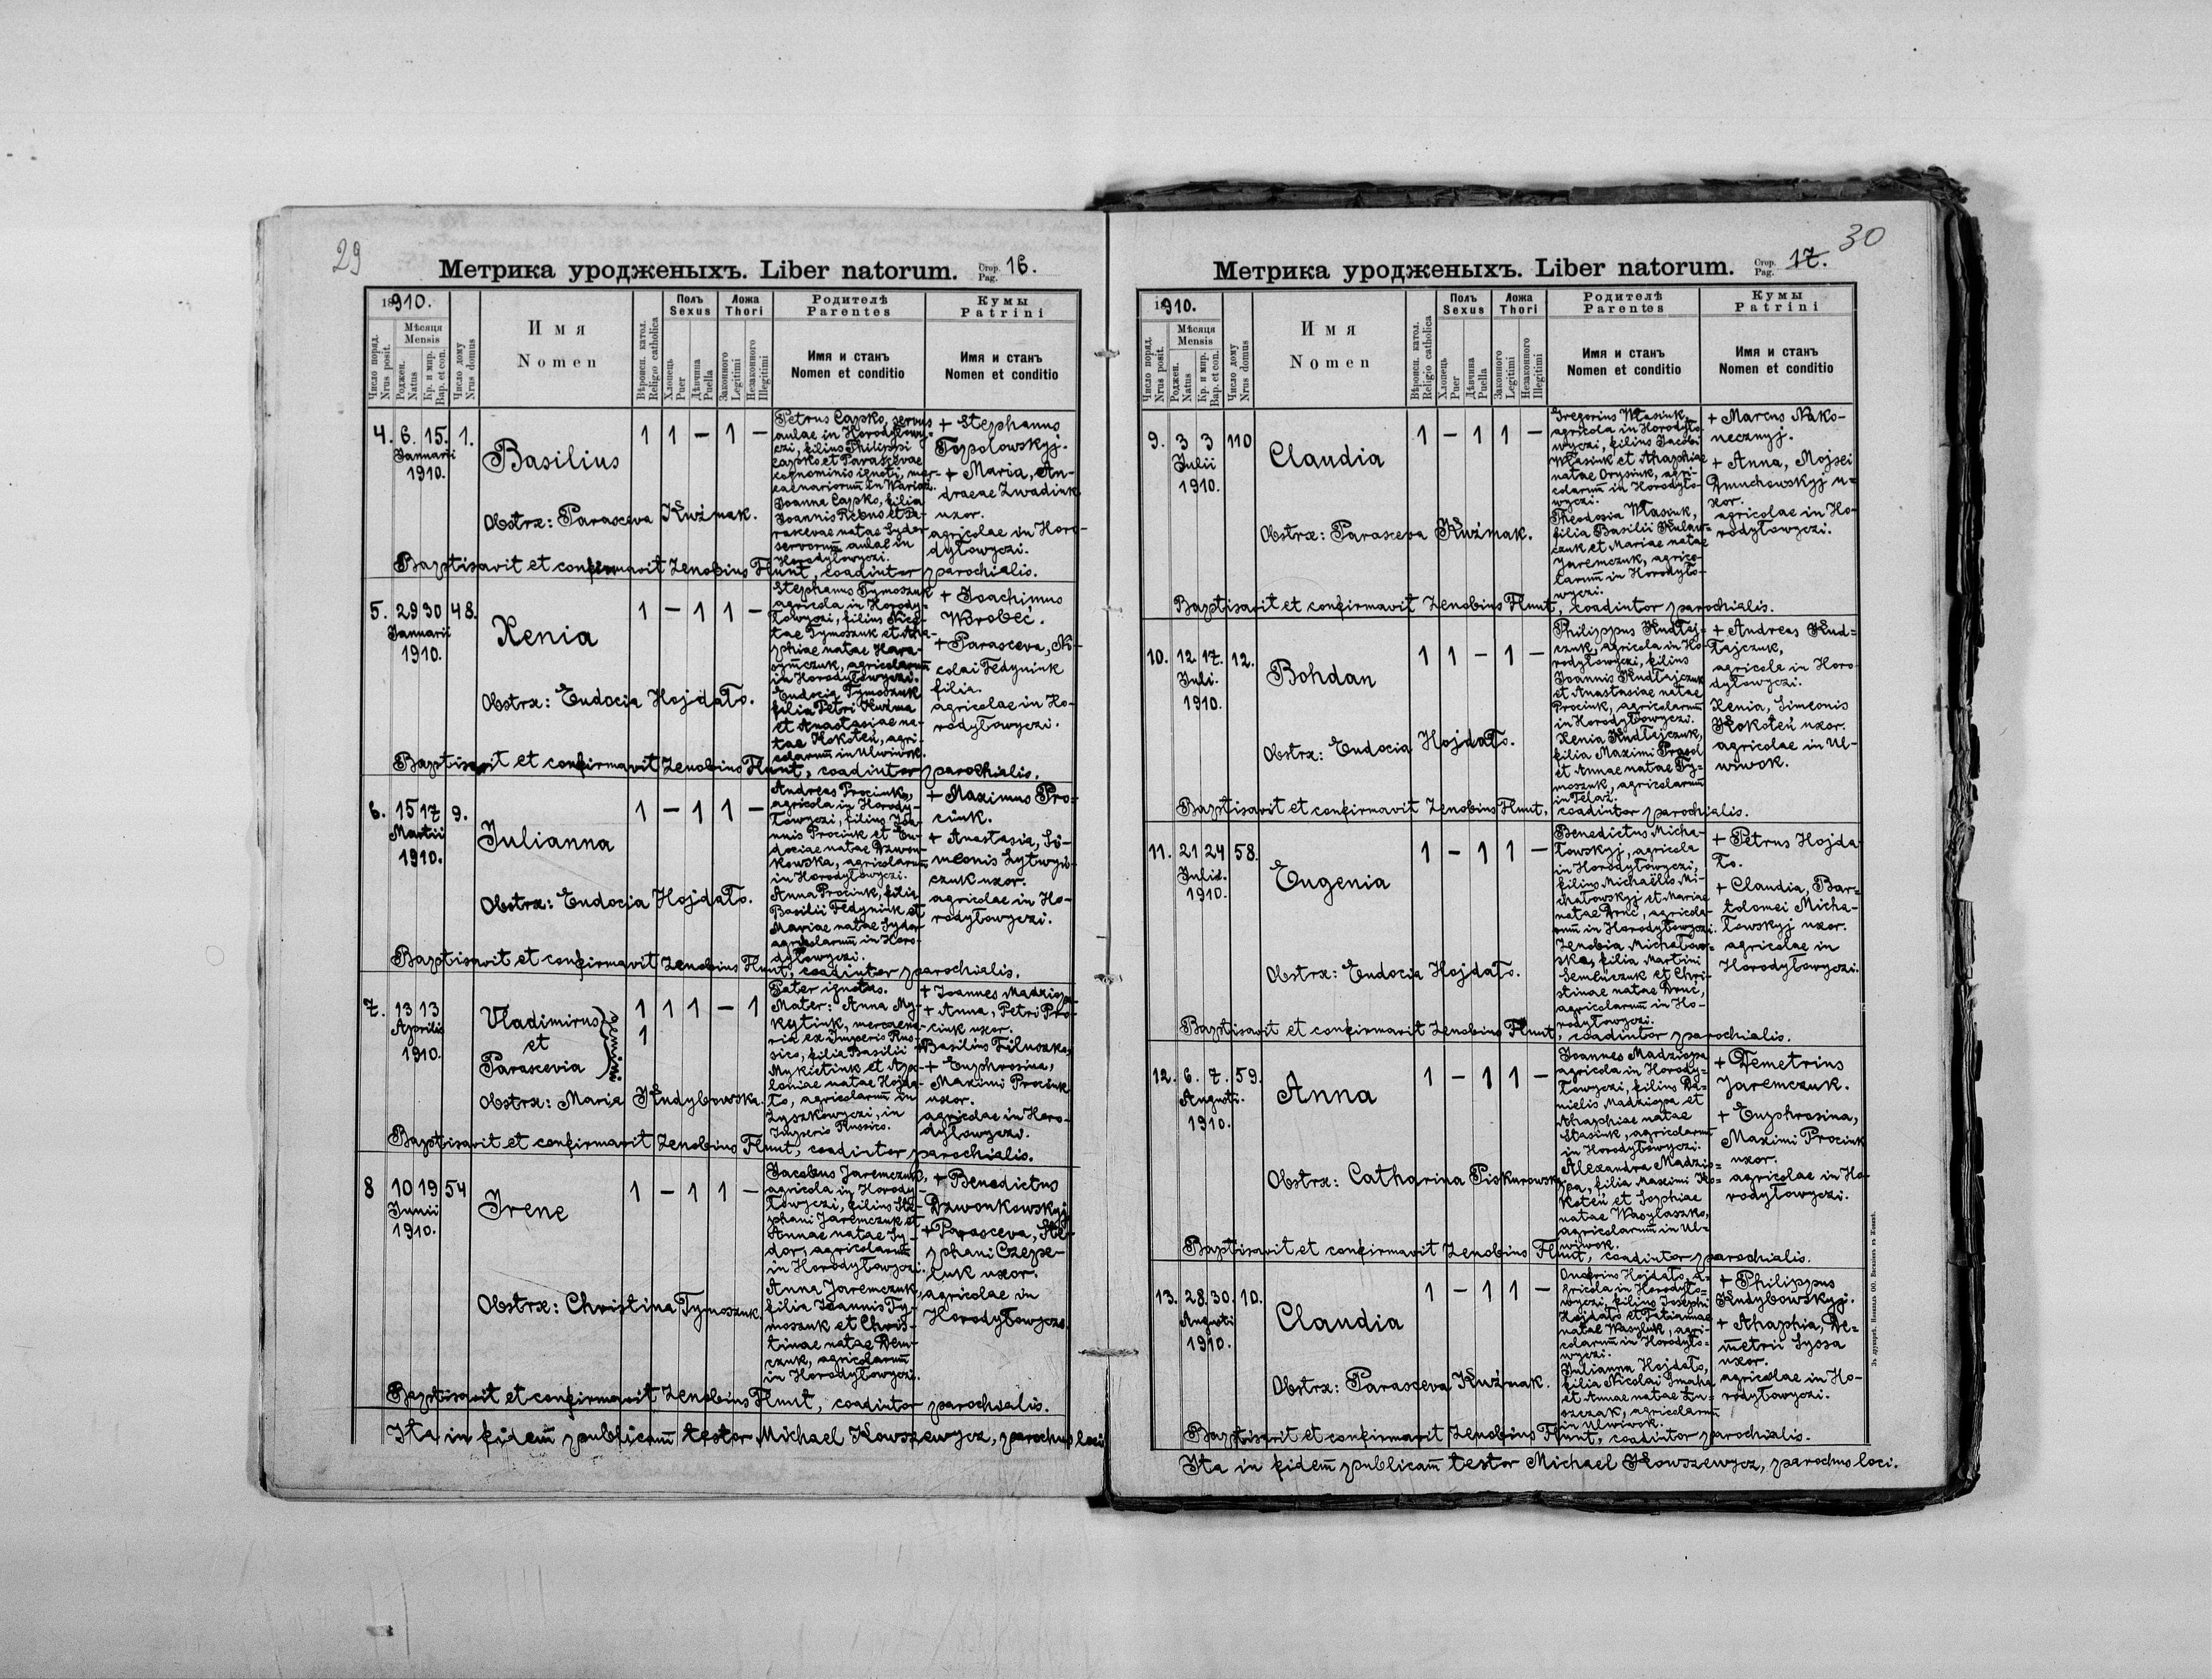 29
Метрика уродженыхъ. Liber natorum. Стор. Pag. 16.
18910.
Число поряд.
Nrus posit.
Мѣсяця
Mensis
Роджен.
Natus
Кр. и мир.
Bap. et con.
Число дому
Nrus domus
Имя
Nomen
Вѣроисп. катол.
Religio catholica
Полъ
Sexus
Хлопець
Puer
Дѣвчина
Puella
Ложа
Thori
Законного
Legitimi
Незаконного
Illegitimi
Родителѣ
Parentes
Имя и станъ
Nomen et conditio
Кумы
Patrini
Имя и станъ
Nomen et conditio
4. 6. 15. 1.
Januarii
1910.
Basilius
1 1 – 1 –
Obstrx: Parasceva Kuźmak.
Petrus Capko, servus
aulae in Horodyłowy-
czi, filius Philippi
Capko et Parascevae
cognominis ignoti, mer-
cenariorum̄ in Waręż.
Joanna Capko, filia
Joannis Rebus et Pa-
rascevae natae Sydor
servorum̄ aulae in
Horodyłowyczi.
+ Stephanus
Topolowskyj.
+ Maria, An-
dreae Zwadiuk
uxor.
agricolae in Horo-
dyłowyczi.
Baptisavit et confirmavit Zenobius Flunt, coadiutor parochialis.
5. 29 30 48.
Januarii
1910.
Xenia
1 – 1 1 –
Obstrx: Eudocia Hojdało.
Stephanus Tymoszuk
agricola in Horody-
łowyczi, filius Nice-
tae Tymoszuk et Aha-
phiae natae Hara-
symczuk, agricolarum̄
in Horodyłowyczi.
Eudocia Tymoszuk
filia Petri Kuźma
et Anastasiae na-
tae Kokoteń, agri-
colarum̄ in Ulwiwok.
+ Joachimus
Worobeć.
+ Parasceva, Ni-
colai Fedyniuk
filia.
agricolae in Ho-
rodyłowyczi.
Baptisavit et confirmavit Zenobius Flunt, coadiutor parochialis.
6. 15 17 9.
Martii
1910.
Julianna
1 – 1 1 –
Obstrx: Eudocia Hojdało.
Andreas Prociuk,
agricola in Horody-
łowyczi, filius Joa-
nnis Prociuk et Eu-
dociae natae Dzwon-
kowska, agricolarum̄
in Horodyłowyczi.
Anna Prociuk, filia
Basilii Fedyniuk et
Mariae natae Sydor
agricolarum̄ in Horo-
dyłowyczi.
+ Maximus Pro-
ciuk.
+ Anastasia, Si-
meonis Lytwyn-
czuk uxor.
agricolae in Ho-
rodyłowyczi.
Baptisavit et confirmavit Zenobius Flunt, coadiutor parochialis.
7. 13 13
Aprilis
1910.
Vladimirus
et
Parascevia
gemini
1 1 1 – 1
1
Obstrx: Maria Kudybowska.
Pater ignotus.
Mater: Anna My-
kytiuk, mercena-
ria ex Imperio Rus-
sico, filia Basilii
Mykietiuk et Apo-
loniae natae Hojda-
ło, agricolarum̄ in
Łyszkowyczi, in
Imperio Russico.
+ Joannes Madziopa
+ Anna, Petri Pro-
ciuk uxor.
Basilius Filuszko,
+ Euphrosina,
Maximi Prociuk
uxor.
agricolae in Horo-
dyłowyczi.
Baptisavit et confirmavit Zenobius Flunt, coadiutor parochialis.
8 10 19 54
Junii
1910.
Irene
1 – 1 1 –
Obstrx: Christina Tymoszuk.
Jacobus Jaremczuk,
agricola in Horody-
łowyczi, filius Ste-
phani Jaremczuk et
Annae natae Sy-
dor, agricolarum̄
in Horodyłowyczi.
Anna Jaremczuk,
filia Joannis Ty-
moszuk et Chris-
tinae natae Dem-
czuk, agricolarum̄
in Horodyłowyczi.
+ Benedictus
Dzwonkowskyj
+ Parasceva, Ste-
phani Czepe-
luk uxor.
agricolae in
Horodyłowyczi.
Baptisavit et confirmavit Zenobius Flunt, coadiutor parochialis.
Ita in fidem̄ publicam̄ testor Michael Kowszewycz, parochus loci
30
Метрика уродженыхъ. Liber natorum. Стор. Pag. 17.
1910.
Число поряд.
Nrus posit.
Мѣсяця
Mensis
Роджен.
Natus
Кр. и мир.
Bap. et con.
Число дому
Nrus domus
Имя
Nomen
Вѣроисп. катол.
Religio catholica
Полъ
Sexus
Хлопець
Puer
Дѣвчина
Puella
Ложа
Thori
Законного
Legitimi
Незаконного
Illegitimi
Родителѣ
Parentes
Имя и станъ
Nomen et conditio
Кумы
Patrini
Имя и станъ
Nomen et conditio
9. 3 3 110
Julii
1910.
Claudia
1 – 1 1 –
Obstrx: Parasceva Kuźmak.
Gregorius Własiuk,
agricola in Horodyło-
wyczi, filius Jacobi
Własiuk et Ahaphiae
natae Orysiuk, agri-
colarum̄ in Horodyło-
wyczi.
Theodosia Własiuk,
filia Basilii
czuk et Mariae natae
Jaremczuk, agrico-
larum̄ in Horodyło-
wyczi.
+ Marcus Nako-
necznyj.
+ Anna, Mojsei
Dmuchowskyj u-
xor.
agricolae in Ho-
rodyłowyczi.
Baptisavit et confirmavit Zenobius Flunt, coadiutor parochialis.
10. 12 17. 12.
Juli.
1910.
Bohdan
1 1 – 1 –
Obstrx: Eudocia Hojdało.
Philippus Kudłaj-
czuk, agricola in Ho-
rodyłowyczi, filius
Joannis Kudłajczuk
et Anastasiae natae
Prociuk, agricolarum̄
in Horodyłowyczi.
Xenia Kudłajczuk,
filia Maximi Prasol
et Annae natae Ty-
moszuk, agricolarum̄
in Telaż.
+ Andreas Kud-
łajczuk,
agricola in Horo-
dyłowyczi.
Xenia, Simeonis
Kokoteń uxor.
agricolae in Ul-
wiwok.
Baptisavit et confirmavit Zenobius Flunt, coadiutor parochialis.
11. 21 24 58.
Julii.
1910.
Eugenia
1 – 1 1 –
Obstrx: Eudocia Hojdało.
Benedictus Micha-
łowskyj, agricola
in Horodyłowyczi,
filius Michaëlis Mi-
chałowskyj et Mariae
natae Druć, agricola-
rum̄ in Horodyłowyczi.
Zenobia Michałow-
ska, filia Martini
Semeńczuk et Chri-
stinae natae Druć,
agricolarum̄ in Ho-
rodyłowyczi.
+ Petrus Hojda-
ło.
+ Claudia, Bar-
tolomei Micha-
łowskyj uxor.
agricolae in
Horodyłowyczi.
Baptisavit et confirmavit Zenobius Flunt, coadiutor parochialis.
12. 6. 7. 59.
Augusti.
1910.
Anna
1 – 1 1 –
Obstrx: Catharina Piskurowska
Joannes Madziopa
agricola in Horody-
łowyczi, filius Da-
nielis Madziopa et
Ahaphiae natae
Stasiuk, agricolarum̄
in Horodyłowyczi.
Alexandra Madzio-
pa, filia Maximi Ko-
koteń et Sophiae
natae Wasylaszko,
agricolarum̄ in Ul-
wiwok.
+ Demetrius
Jaremczuk.
+ Euphrosina,
Maximi Prociuk
uxor.
agricolae in Ho-
rodyłowyczi.
Baptisavit et confirmavit Zenobius Flunt, coadiutor parochialis.
13. 28. 30. 10.
Augusti
1910.
Claudia
1 – 1 1 –
Obstrx: Parasceva Kuźmak.
Onufrius Hojdało, a-
gricola in Horodyło-
wyczi, filius Josephi
Hojdało et Tatiannae
natae Wasyluk, agri-
colarum̄ in Horodyło-
wyczi.
Julianna Hojdało,
filia Nicolai Smaha
et Annae natae Łu-
szczak, agricolarum̄
in Ulwiwok.
+ Philippus
Kudybowskyj.
+ Ahaphia, De-
metrii Lyssa
uxor.
agricolae in Ho-
rodyłowyczi.
Baptisavit et confirmavit Zenobius Flunt, coadiutor parochialis.
Ita in fidem̄ publicam̄ testor Michael Kowszewycz, parochus loci.
Зъ друкарнѣ ОО. Василіянъ въ Жовквѣ.